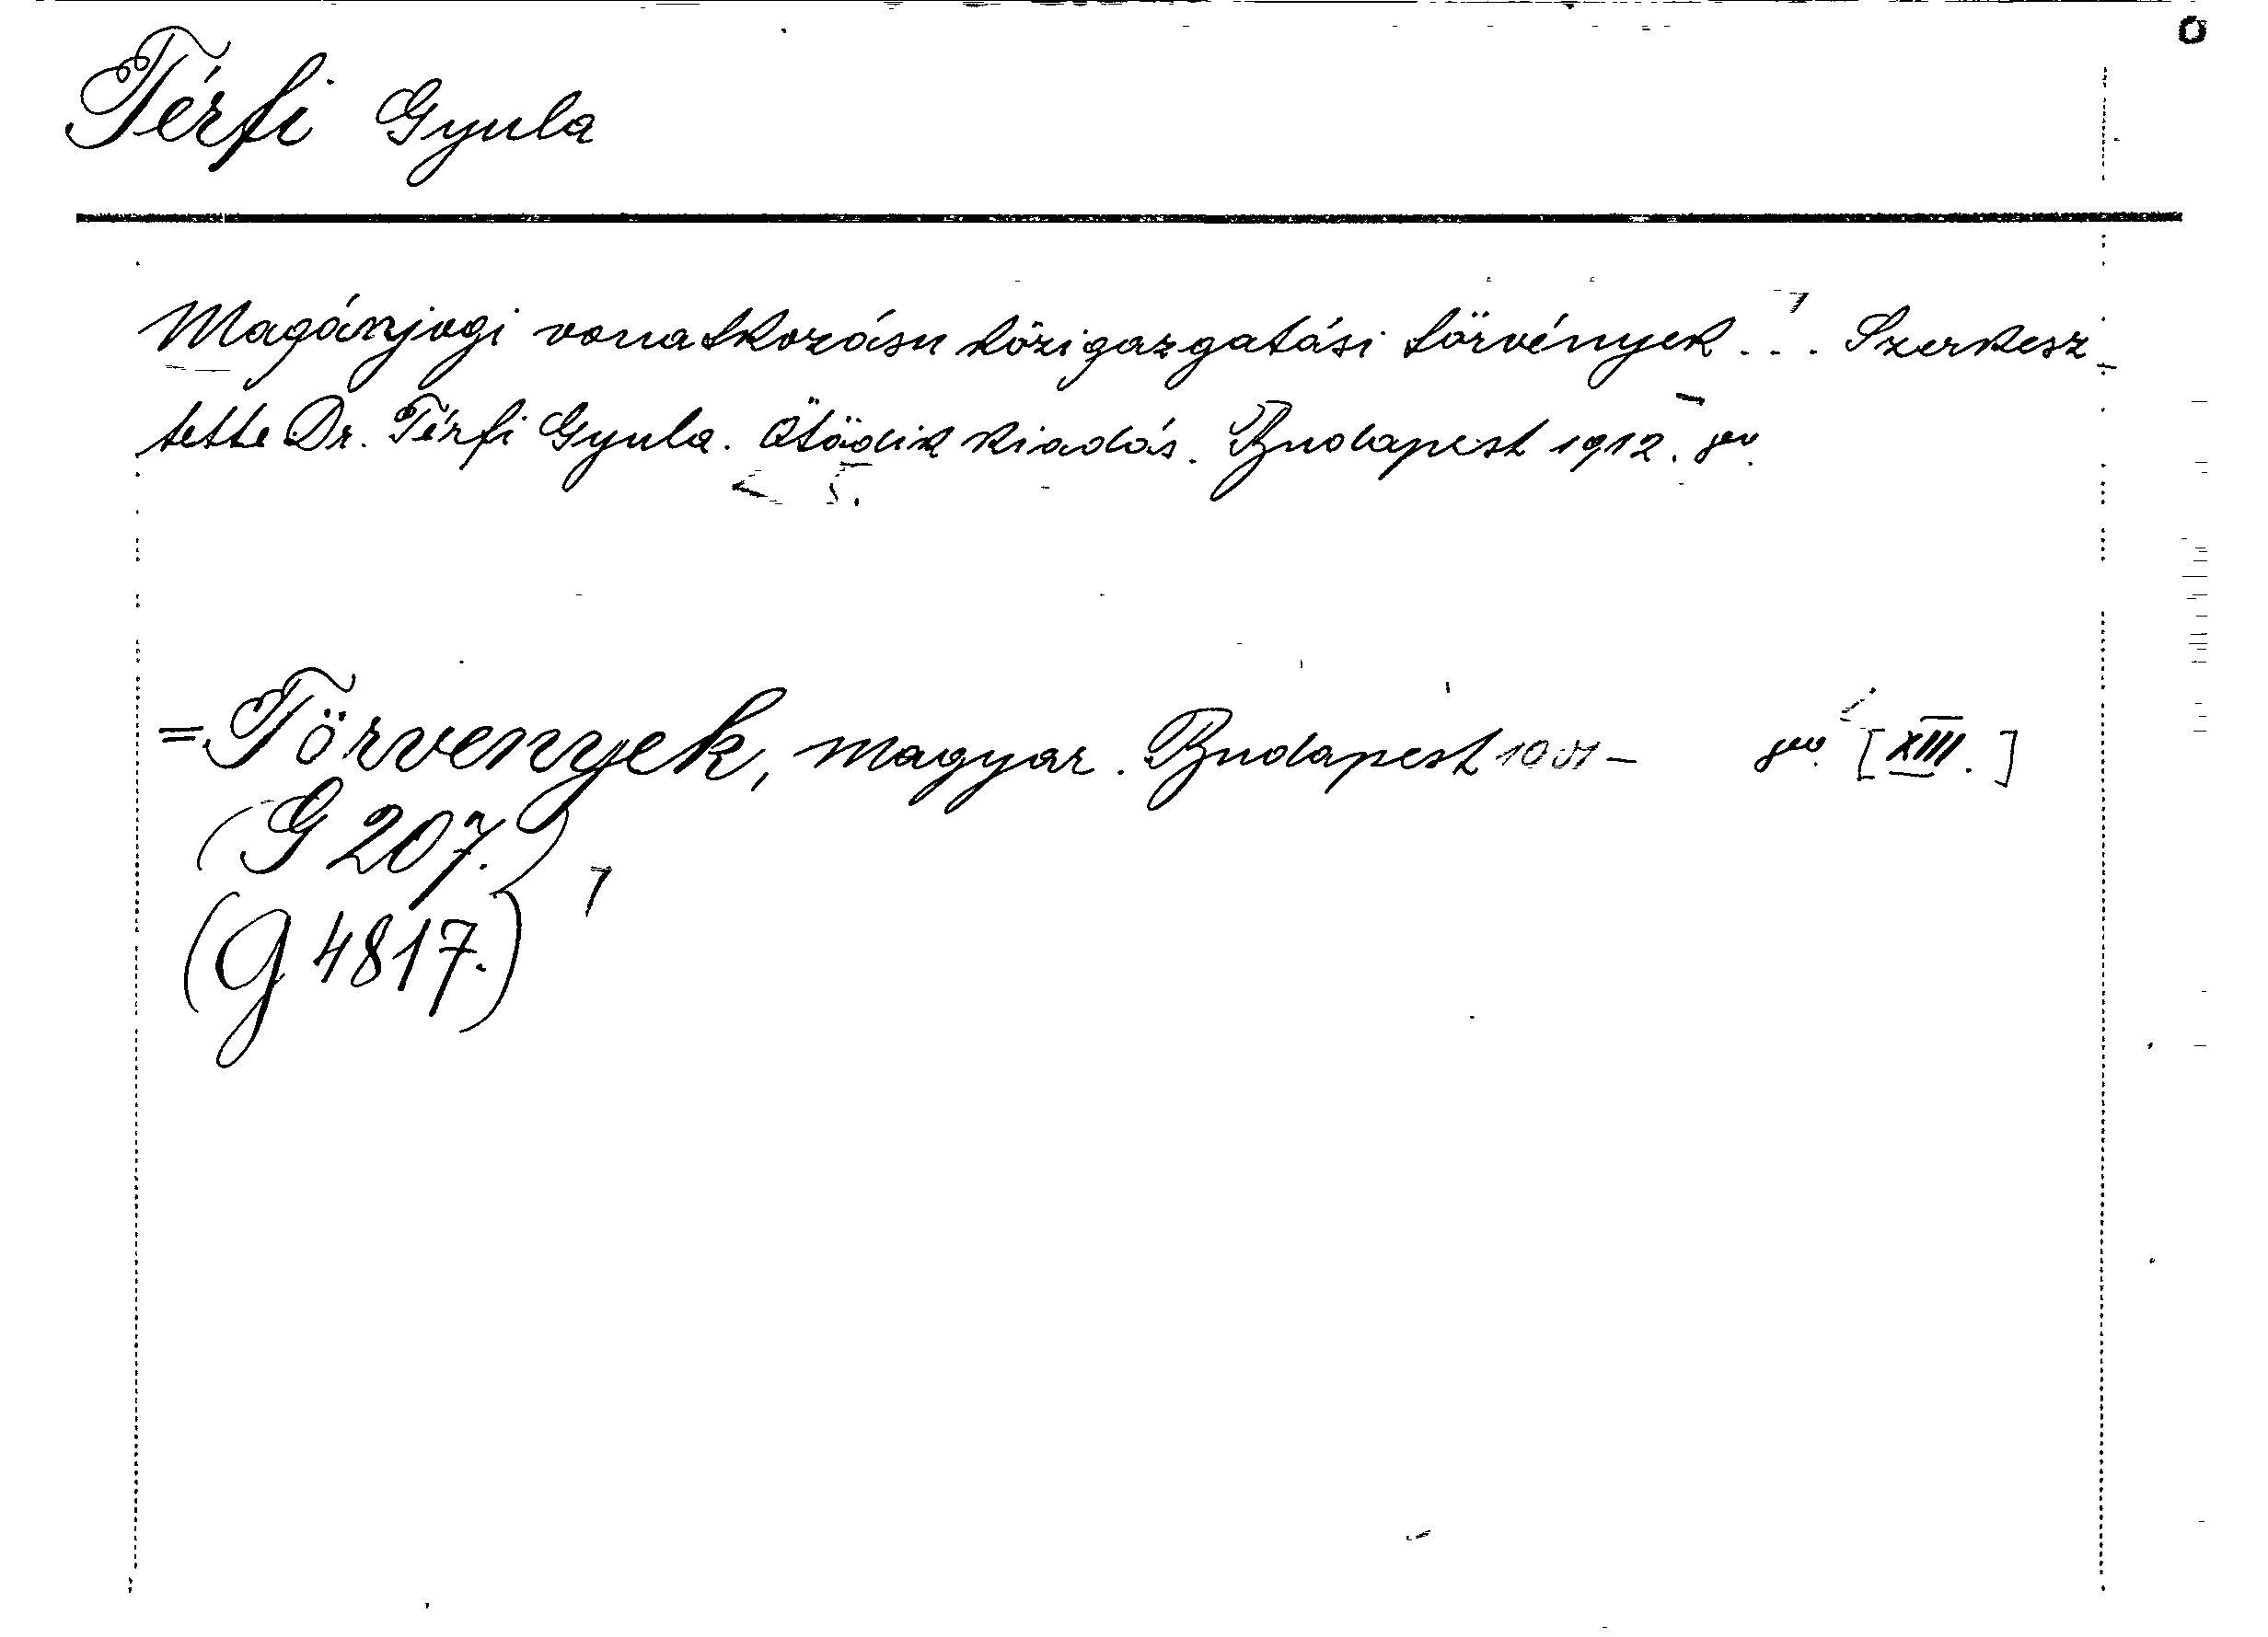 Térfi Gyula
Magánjogi vonatkozásu közigazgatási törvények . . . Szerkesz
tette Dr. Térfi Gyula. Ötödik kiadás. Budapest 1912.
< 5.
= Törvenyek, magyar. Budapest [XIII.]
(G 207.)
(G 4817.)